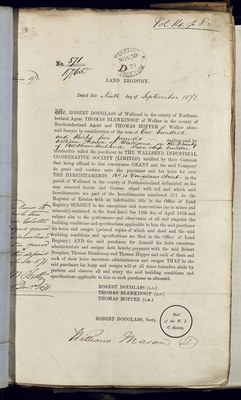 Vol 14 p 8
No. 571
LAND REGISTRY.
Dated this Ninth day of September 1871
WE, ROBERT DOUGLASS of Wallsend in the county of Northum-
berland Agent THOMAS BLENKINSOP of Walker in the county of
Northumberland Agent and THOMAS HOPPER of Walker afore-
said Surveyor in consideration of the sum of One hundred
and thirty five pounds sterling paid by
William Mason of Wallsend in the County
of Northumberland
hereinafter called the purchaser to THE WALLSEND INDUSTRIAL
CO-OPERATIVE SOCIETY (LIMITED) testified by their Common
Seal being affixed to this conveyance GRANT and the said Company
do grant and confirm unto the purchaser and his heirs for ever
THE HEREDITAMENTS
parish of Wallsend in the county of Northumberland delineated on the
map annexed hereto and thereon edged with red and which said
hereditaments are part of the hereditaments numbered 571 in the
Register of Estates with an Indefeasible title in the Office of Land
Registry SUBJECT to the exceptions and reservations (as to mines and
minerals) contained in the deed dated the 12th day of April 1856 and
subject also to the performance and observance of all and singular the
building conditions and specifications applicable to him the said purchaser
his heirs and assigns (printed copies of which said deed and the said
building conditions and specifications are filed in the Office of Land
Registry) AND the said purchaser for himself his heirs executors
administrators and assigns doth hereby covenant with the said Robert
Douglass, Thomas Blenkinsop and Thomas Hopper and each of them and
each of their heirs executors administrators and assigns THAT he the
said purchaser his heirs and assigns will at all times hereafter abide by
perform and observe all and every the said building conditions and
specifications applicable to him as such purchaser as aforesaid.
ROBERT DOUGLASS (L.S.)
THOMAS BLENKINSOP (L.S.)
THOMAS HOPPER (L.S.)
ROBERT DOUGLASS, Secty.
Seal
of the W. I.
C. Society.
William Mason